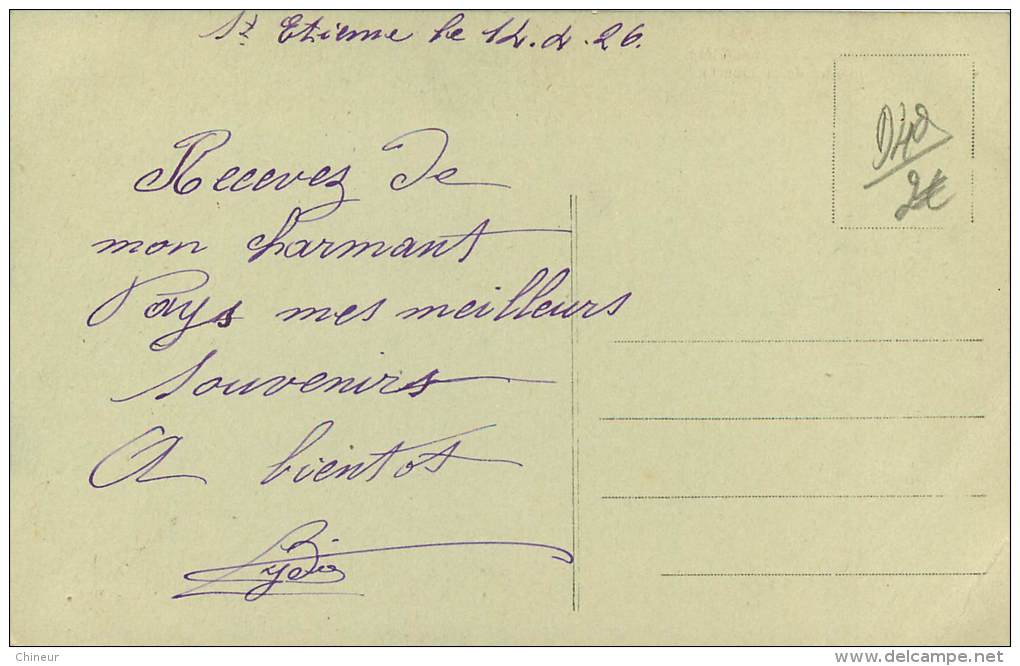 St Etienne le 12.2.26.
Recevez de
mon charmant
Pays mes meilleurs
Souvenirs
A bientot
Lydie
D42
2€
Chineur
delcampe.net